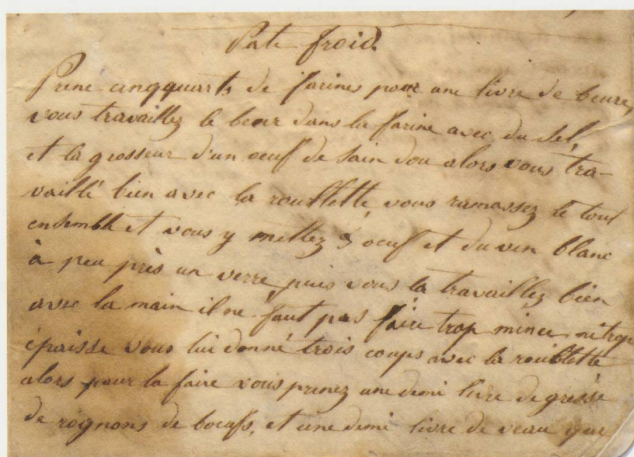 Pate froid
Prene cinqquarts de farines pour une livre de beure,
vous travaillez le beur dans la farine avec du sel,
et la grosseur d'un oeuf de sain dou alors vous tra-
vaillé bien avec la roullette, vous ramassez le tout
ensemble et vous y mettez oeuf et du vin blanc
à peu près un verre, puis vous la travaillez bien
avec la main il ne faut pas faire trop mince ni trop
épaisse vous lui donné trois coups avec la roullette
alors pour la faire vous prenez une demi livre de graisse
de rognons de boeufs, et une demi livre de veau que